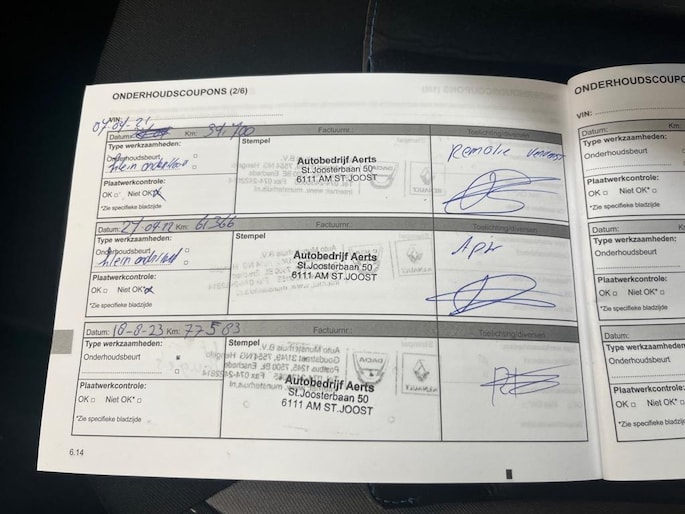 ONDERHOUDSCOUPONS (2/6)
VIN:
07-04-21
Datum: Km: 34.700 Factuurnr.: Toelichting/diversen
Type werkzaamheden: Stempel
Onderhoudsbeurt
klein onderhoud
Autobedrijf Aerts
St.Joosterbaan 50
6111 AM ST.JOOST
Remolie
Plaatwerkcontrole:
OK Niet OK*
*Zie specifieke bladzijde
Datum: 27-04-22 Km: 61366 Factuurnr.: Toelichting/diversen
Type werkzaamheden: Stempel
Onderhoudsbeurt
klein onderhoud
Autobedrijf Aerts
St.Joosterbaan 50
6111 AM ST.JOOST
Apk
Plaatwerkcontrole:
OK Niet OK*
*Zie specifieke bladzijde
Datum: 18-8-23 Km: 77583 Factuurnr.: Toelichting/diversen
Type werkzaamheden: Stempel
Onderhoudsbeurt
Autobedrijf Aerts
St.Joosterbaan 50
6111 AM ST.JOOST
Plaatwerkcontrole:
OK Niet OK*
*Zie specifieke bladzijde
6.14
ONDERHOUDSCOUPO
VIN:
Datum: K
Type werkzaamheden:
Onderhoudsbeurt
Plaatwerkcontrole:
OK Niet OK*
*Zie specifieke bladzijde
Datum: Km
Type werkzaamheden:
Onderhoudsbeurt
Plaatwerkcontrole:
OK Niet OK*
*Zie specifieke bladzijde
Datum: Km
Type werkzaamheden:
Onderhoudsbeurt
Plaatwerkcontrole:
OK Niet OK*
*Zie specifieke bladzijde